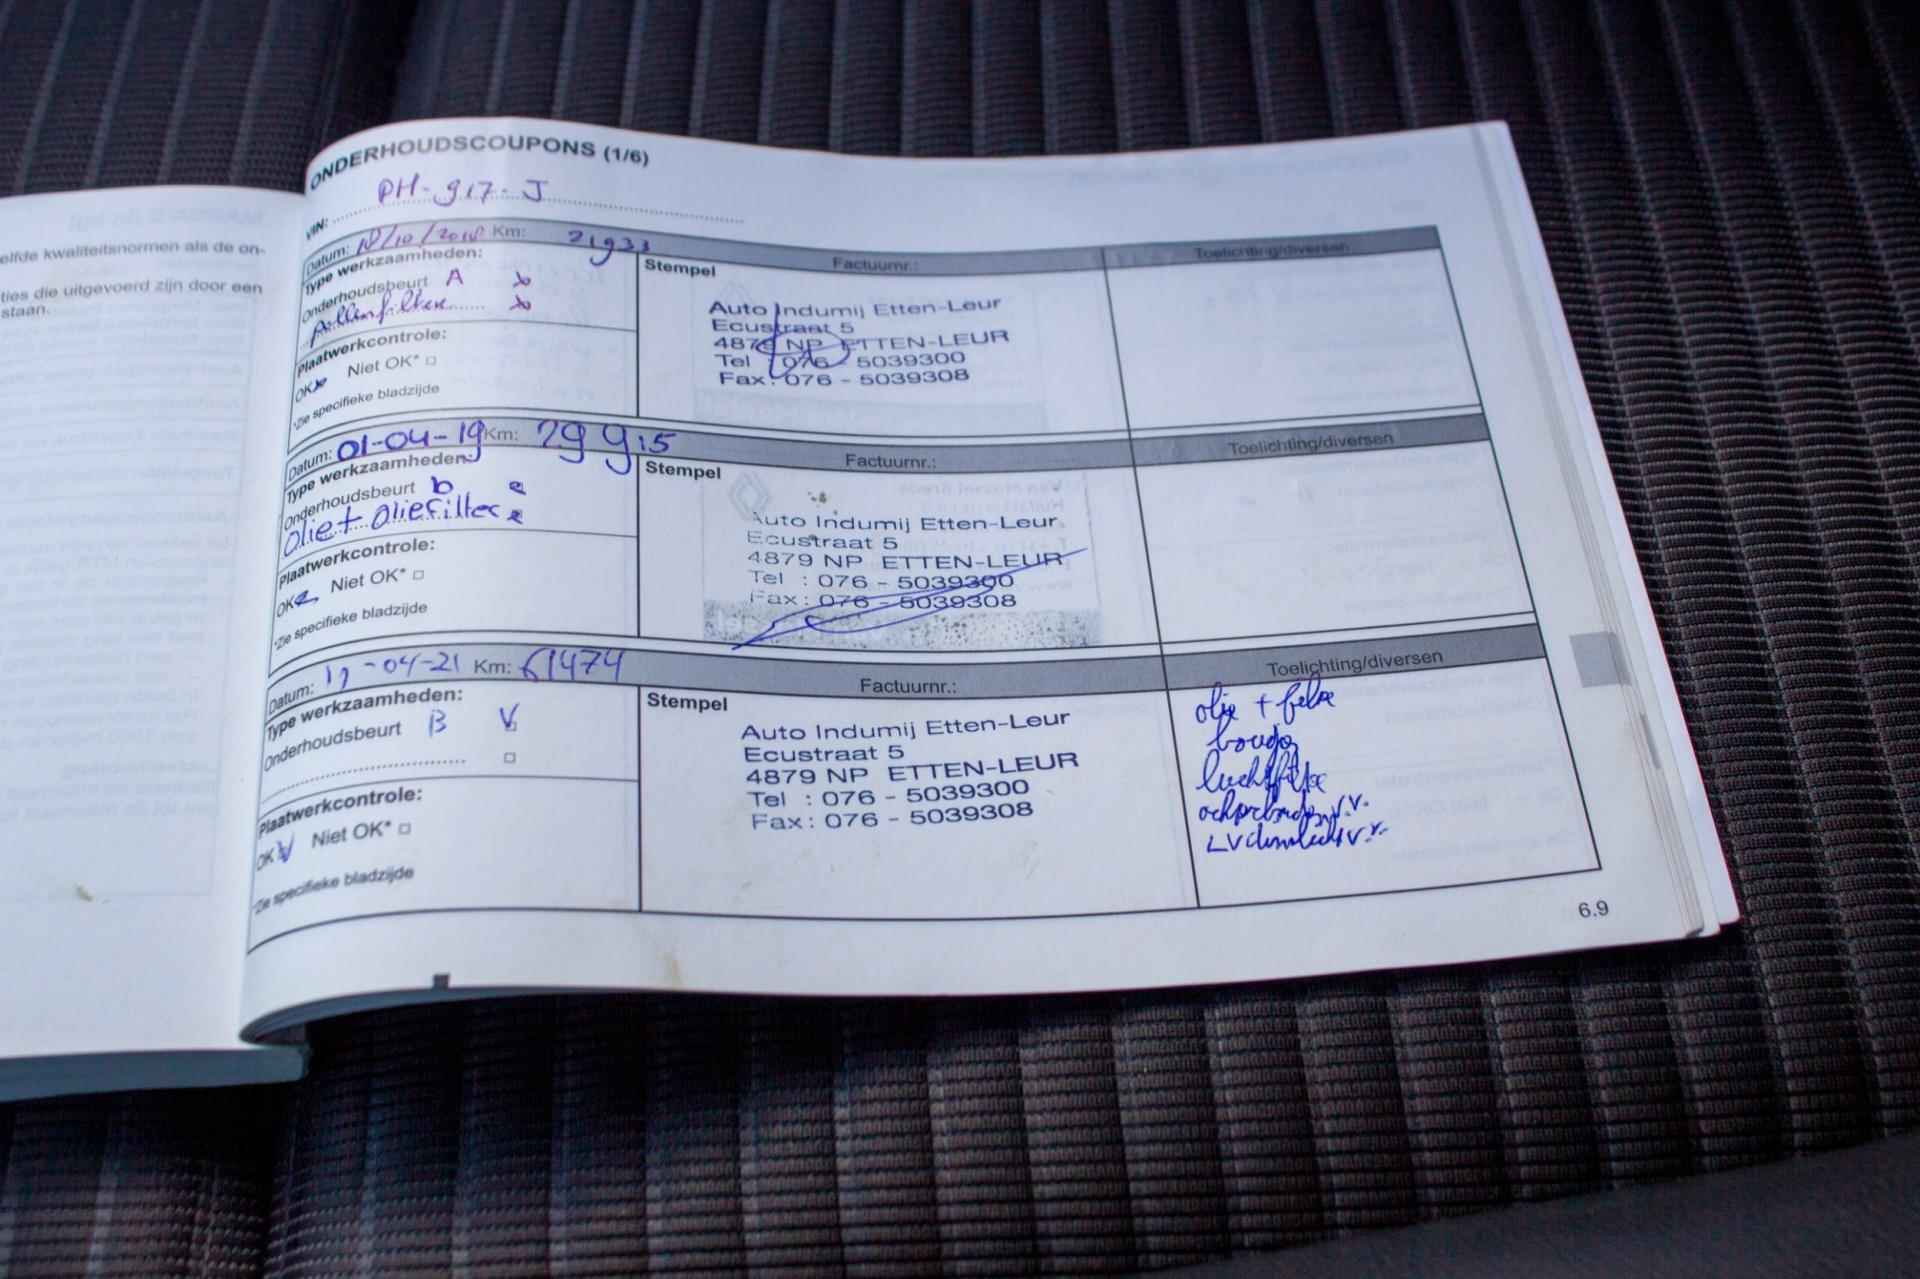 elfde kwaliteitsnormen als de on-
ties die uitgevoerd zijn door een
staan.
ONDERHOUDSCOUPONS (1/6)
VIN: PH-917-J
Datum: 18/10/2018 Km: 21933
Factuurnr.:
Toelichting/diversen
Type werkzaamheden:
Onderhoudsbeurt A
pollenfilter
Plaatwerkcontrole:
OK Niet OK*
*Zie specifieke bladzijde
Stempel
Auto Indumij Etten-Leur
Ecustraat 5
4879 NP ETTEN-LEUR
Tel : 076 - 5039300
Fax: 076 - 5039308
Datum: 01-04-19 Km: 29915
Factuurnr.:
Toelichting/diversen
Type werkzaamheden:
Onderhoudsbeurt b
Olie + Oliefilter
Plaatwerkcontrole:
OK Niet OK*
*Zie specifieke bladzijde
Stempel
Auto Indumij Etten-Leur
Ecustraat 5
4879 NP ETTEN-LEUR
Tel : 076 - 5039300
Fax: 076 - 5039308
Datum: -04-21 Km: 61474
Factuurnr.:
Toelichting/diversen
Type werkzaamheden:
Onderhoudsbeurt B V
Plaatwerkcontrole:
OK V Niet OK*
*Zie specifieke bladzijde
Stempel
Auto Indumij Etten-Leur
Ecustraat 5
4879 NP ETTEN-LEUR
Tel : 076 - 5039300
Fax: 076 - 5039308
olie +
6.9